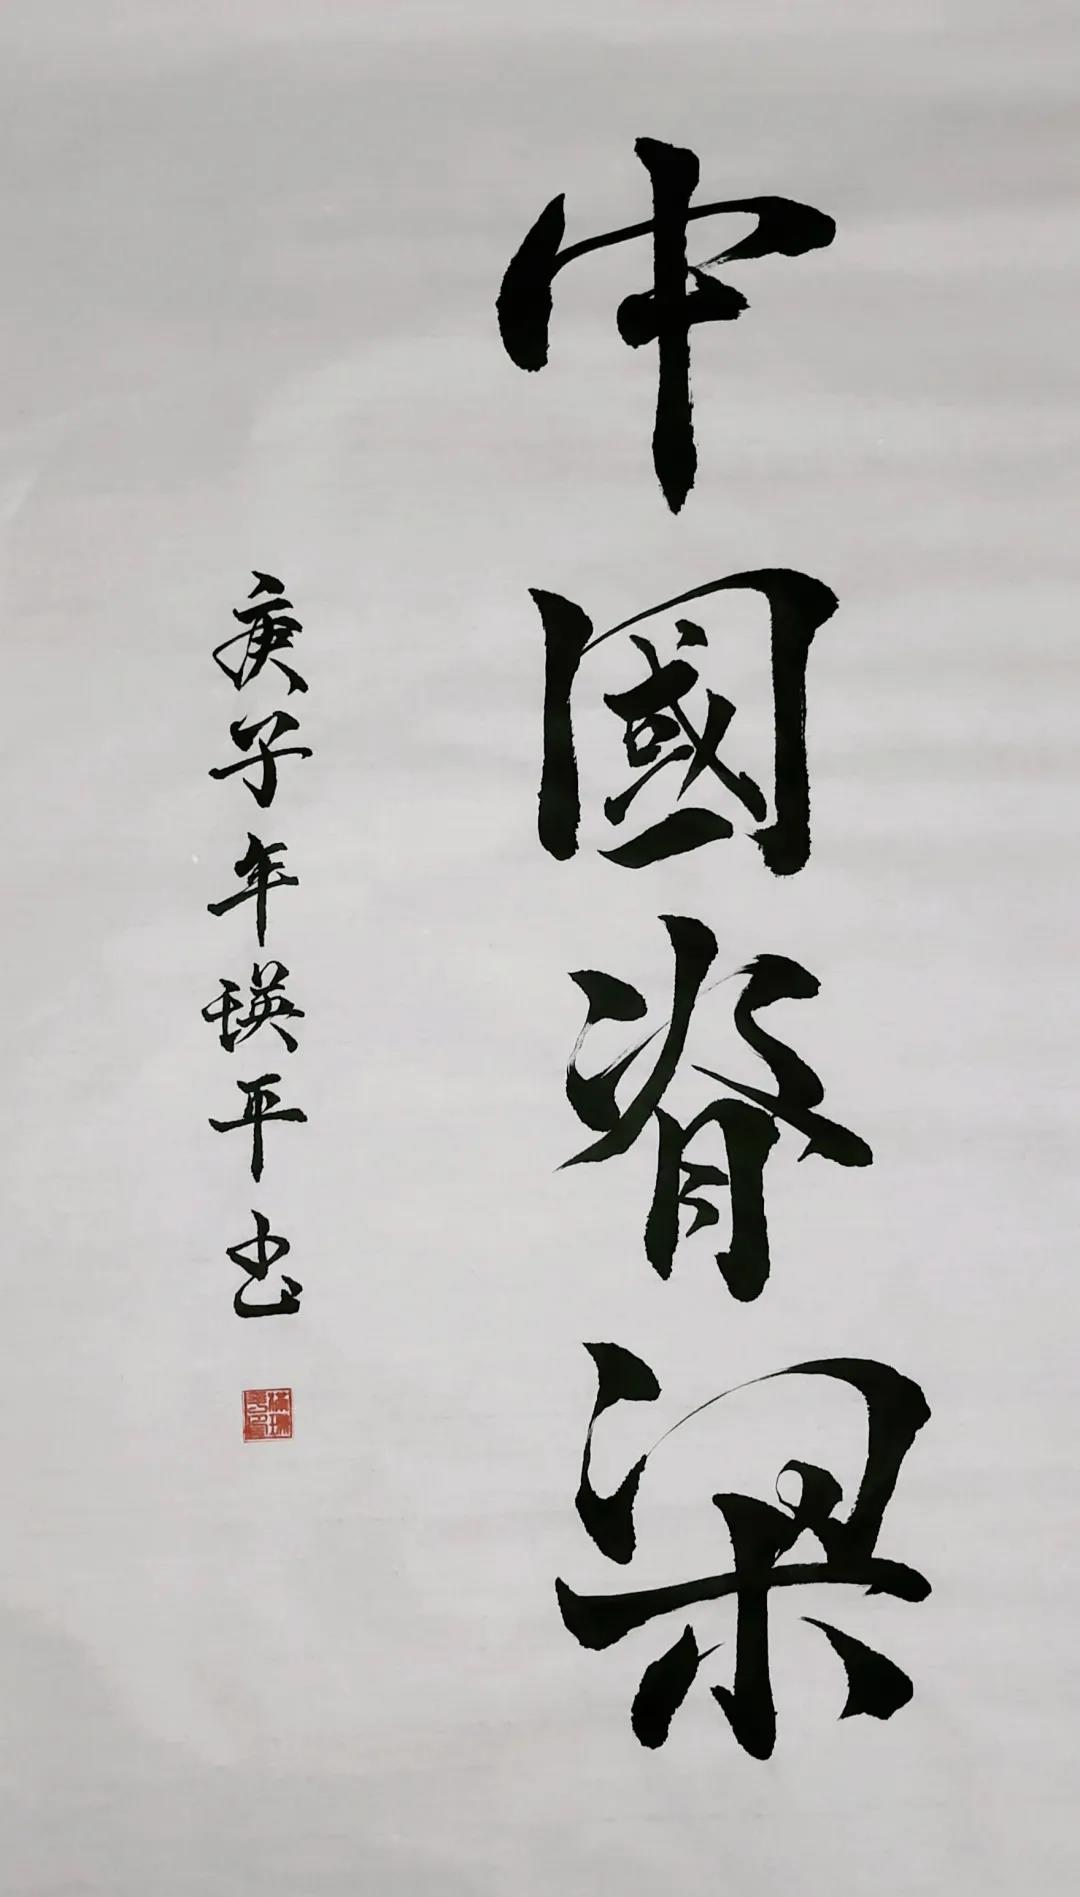 中國脊梁
庚子年瑛平书